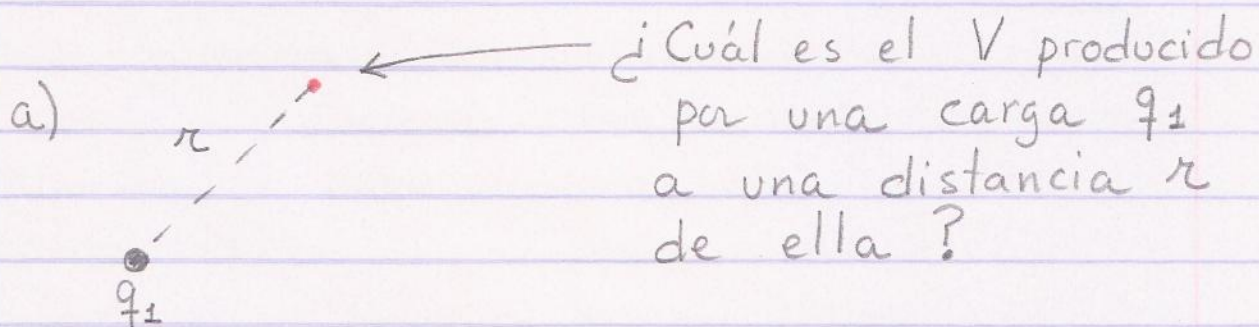 ¿Cuál es el V producido
a)
r
por una carga q1
a una distancia r
de ella ?
q1